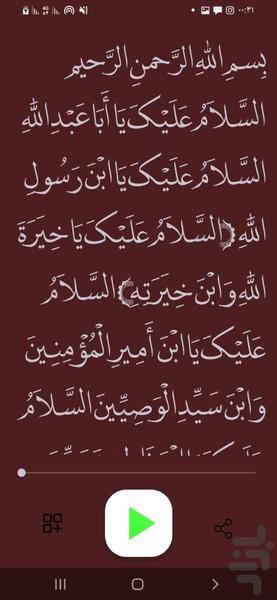 ۰۰:۳۱
بِسمِ اللهِ الرَّحمنِ الرَّحیمِ
السَّلامُ عَلَیْکَ یَا أَبَا عَبْدِ اللهِ
السَّلامُ عَلَیْکَ یَا ابْنَ رَسُولِ
اللهِ (السَّلامُ عَلَیْکَ یَا خِیَرَةَ
اللهِ وَابْنَ خِیَرَتِهِ) السَّلامُ
عَلَیْکَ یَا ابْنَ أَمِیرِ الْمُؤْمِنِینَ
وَابْنَ سَیِّدِ الْوَصِیِّینَ السَّلامُ
بازار